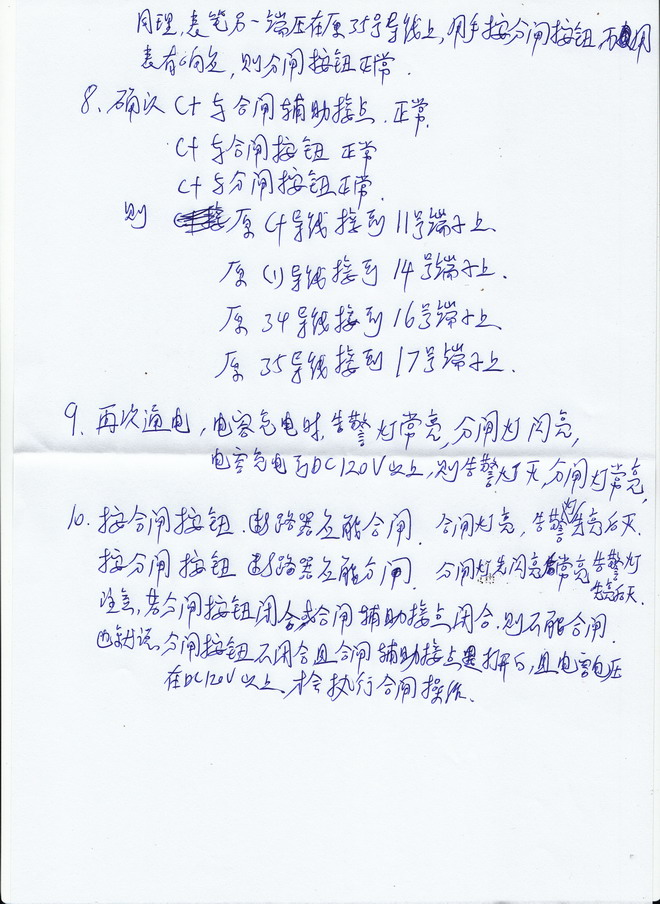 同理,表笔另一端压在原35号导线上,用手按分闸按钮,万用
表有响声,则分闸按钮正常.
8、确认 C+与合闸辅助接点.正常.
C+与合闸按钮 正常
C+与分闸按钮正常.
则 原C+导线接到11号端子上.
原C1导线接到14号端子上.
原34导线接到16号端子上.
原35导线接到17号端子上.
9、再次通电,电容充电时,告警灯常亮,分闸灯闪亮,
电容充电到DC120V以上,则告警灯灭,分闸灯常亮,
10、按合闸按钮.断路器应能合闸.合闸灯亮,告警灯先亮后灭.
按分闸按钮 断路器应能分闸.分闸灯先闪亮后常亮 告警灯
先亮后灭.
注意,若分闸按钮闭合或合闸辅助接点闭合.则不能合闸.
也就是说,分闸按钮不闭合且合闸辅助接点是打开的,且电容电压
在DC120V以上,才会执行合闸操作.